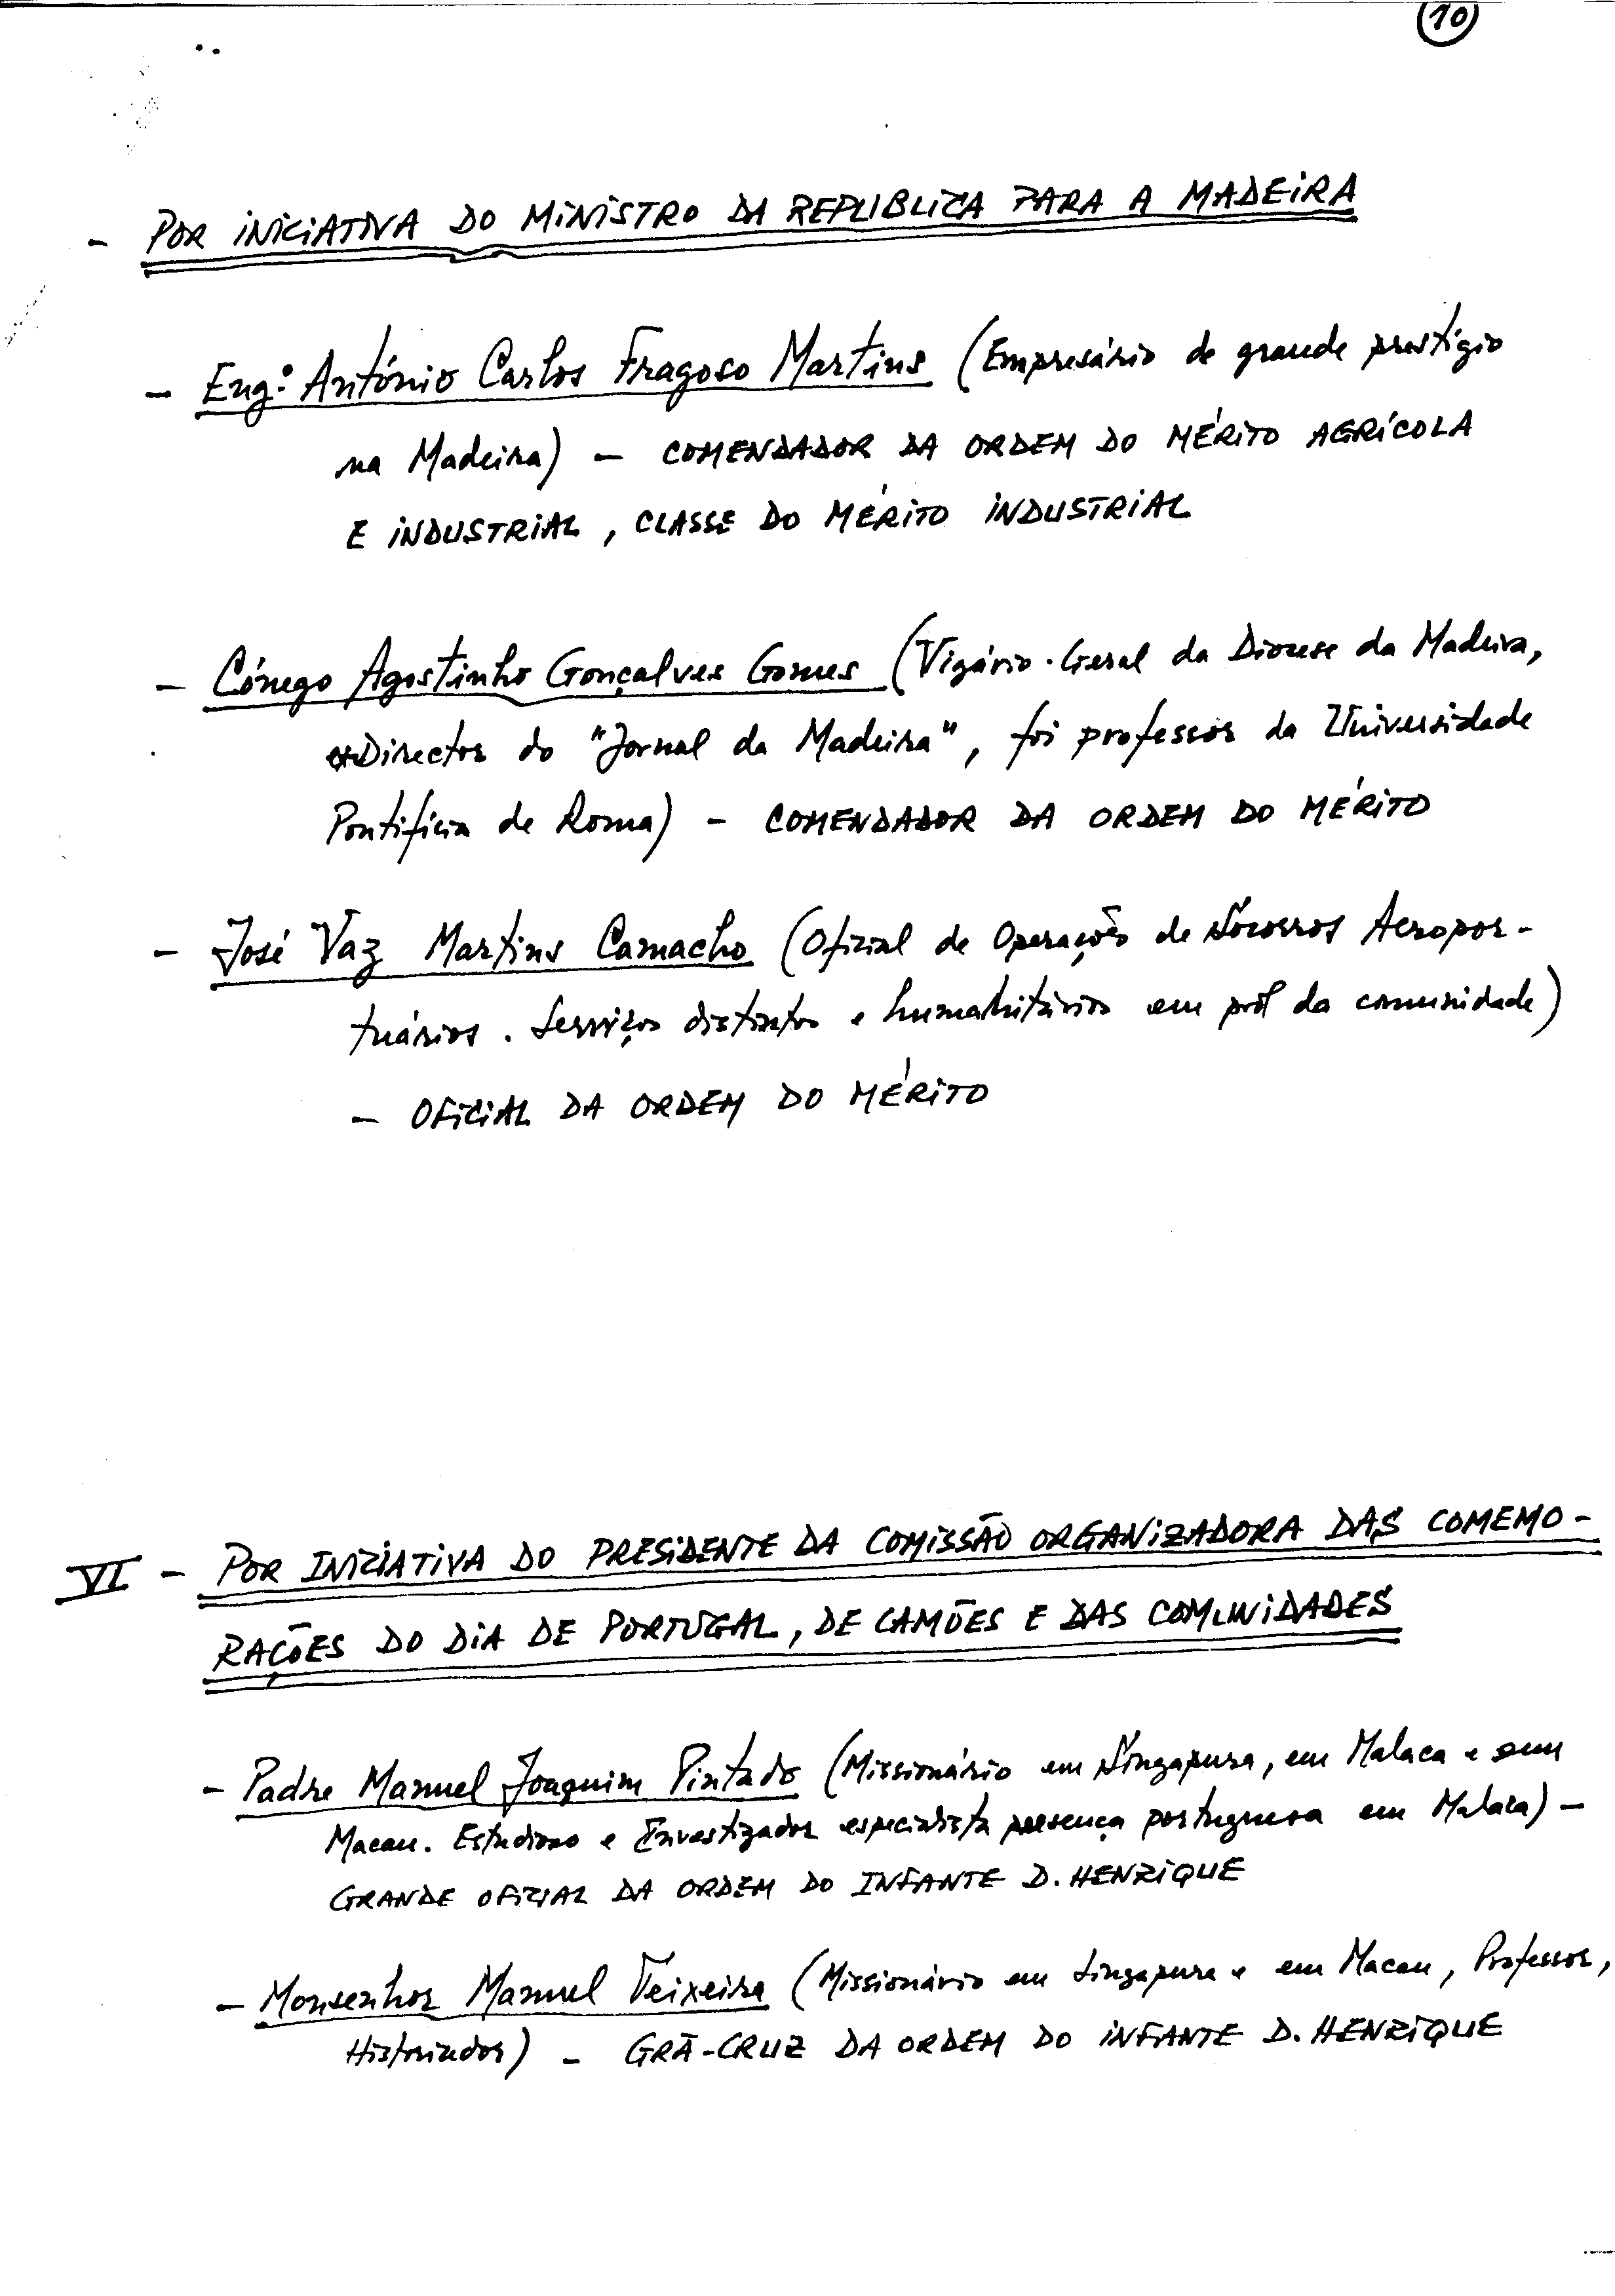 (10)
- POR INICIATIVA DO MINISTRO DA REPUBLICA PARA A MADEIRA
- Eng.º António Carlos Fragoso Martins (Empresário de grande prestígio
na Madeira) - COMENDADOR DA ORDEM DO MÉRITO AGRÍCOLA
E INDUSTRIAL, CLASSE DO MÉRITO INDUSTRIAL
- Cónego Agostinho Gonçalves Gomes (Vigário-Geral da Diocese da Madeira,
exDirector do "Jornal da Madeira", foi professor da Universidade
Pontifícia de Roma) - COMENDADOR DA ORDEM DO MÉRITO
- José Vaz Martins Camacho (Oficial de Operações de Socorros Aeropor-
tuários. Serviços distintos e humanitários em prol da comunidade)
- OFICIAL DA ORDEM DO MÉRITO
VI - POR INICIATIVA DO PRESIDENTE DA COMISSÃO ORGANIZADORA DAS COMEMO-
RAÇÕES DO DIA DE PORTUGAL, DE CAMÕES E DAS COMUNIDADES
- Padre Manuel Joaquim Pintado (Missionário em Singapura, em Malaca e em
Macau. Estudioso e Investigador especialista presença portuguesa em Malaca) -
GRANDE OFICIAL DA ORDEM DO INFANTE D. HENRIQUE
- Monsenhor Manuel Teixeira (Missionário em Singapura e em Macau, Professor,
Historiador) - GRÃ-CRUZ DA ORDEM DO INFANTE D. HENRIQUE